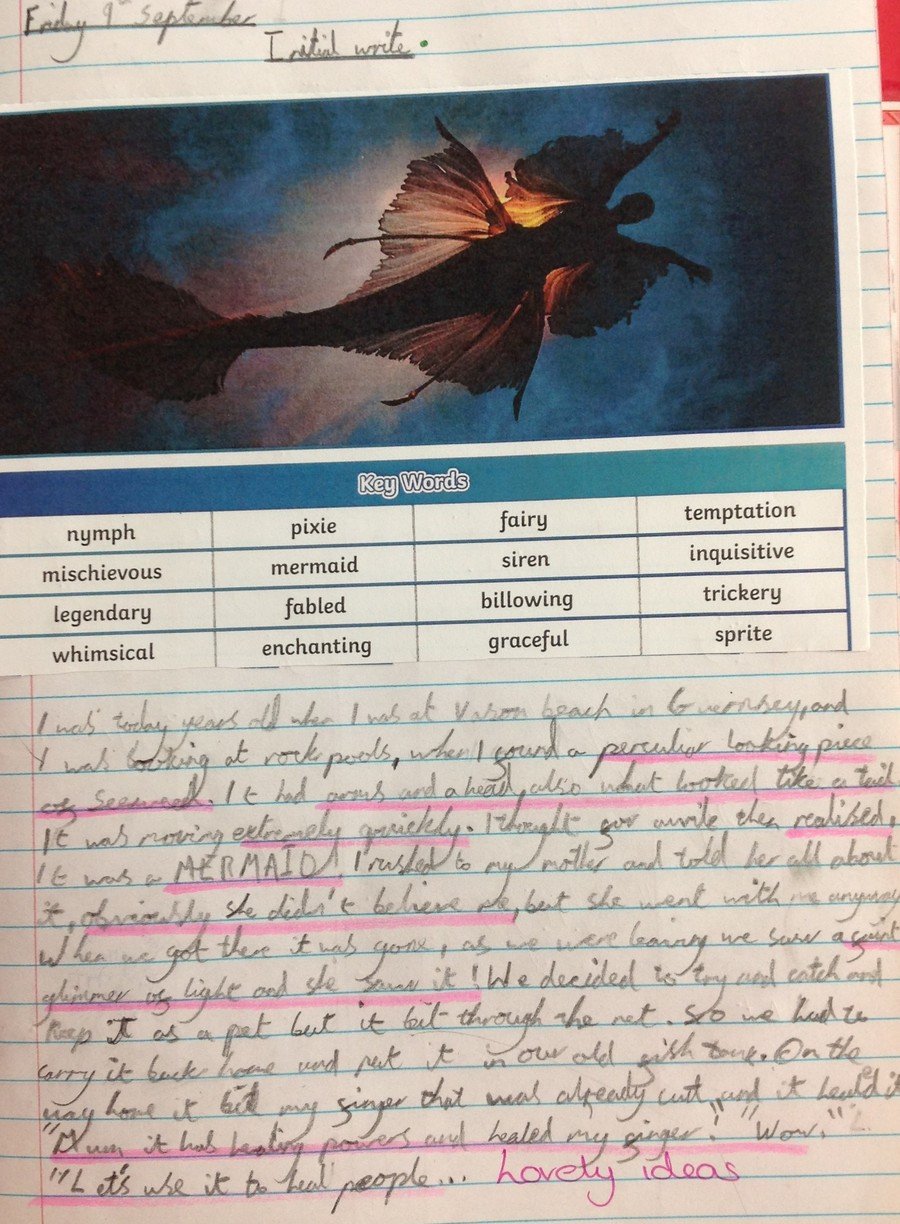 Friday 9th September
Initial write.
Key Words
nymph pixie fairy temptation
mischievous mermaid siren inquisitive
legendary fabled billowing trickery
whimsical enchanting graceful sprite
I was today years old when I was at Vason beach in Guernsey, and
I was looking at rockpools, when I found a peculiar looking piece
of seeweed. It had arms and a head, also what looked like a tail.
It was moving extremely quickly. I thought for awile then realised,
It was a MERMAID! I rushed to my mother and told her all about
it, obviously she didn't believe me, but she went with me anyway
When we got there it was gone, as we were leaving we saw a faint
glimmer of light and she saw it! We decided to try and catch and
keep it as a pet but it bit through the net. So we had to
carry it back home and put it in our old fish tank. On the
way home it bit my finger that was already cut, and it heald it
"Mum it has healing powers and healed my finger!" "Wow."
"Let's use it to heal people... Lovely ideas